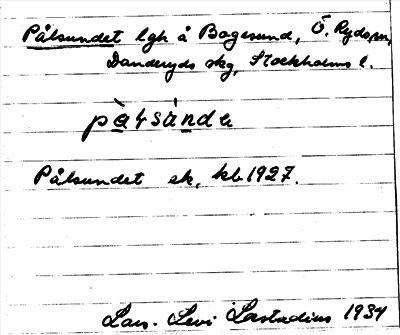 Pålsundet lgh å Bogesund, Ö. Ryds sn,
Danderyds skg, Stockholms l.
Pålsundet ek. kb 1927.
Lars-Levi Læstadius 1934